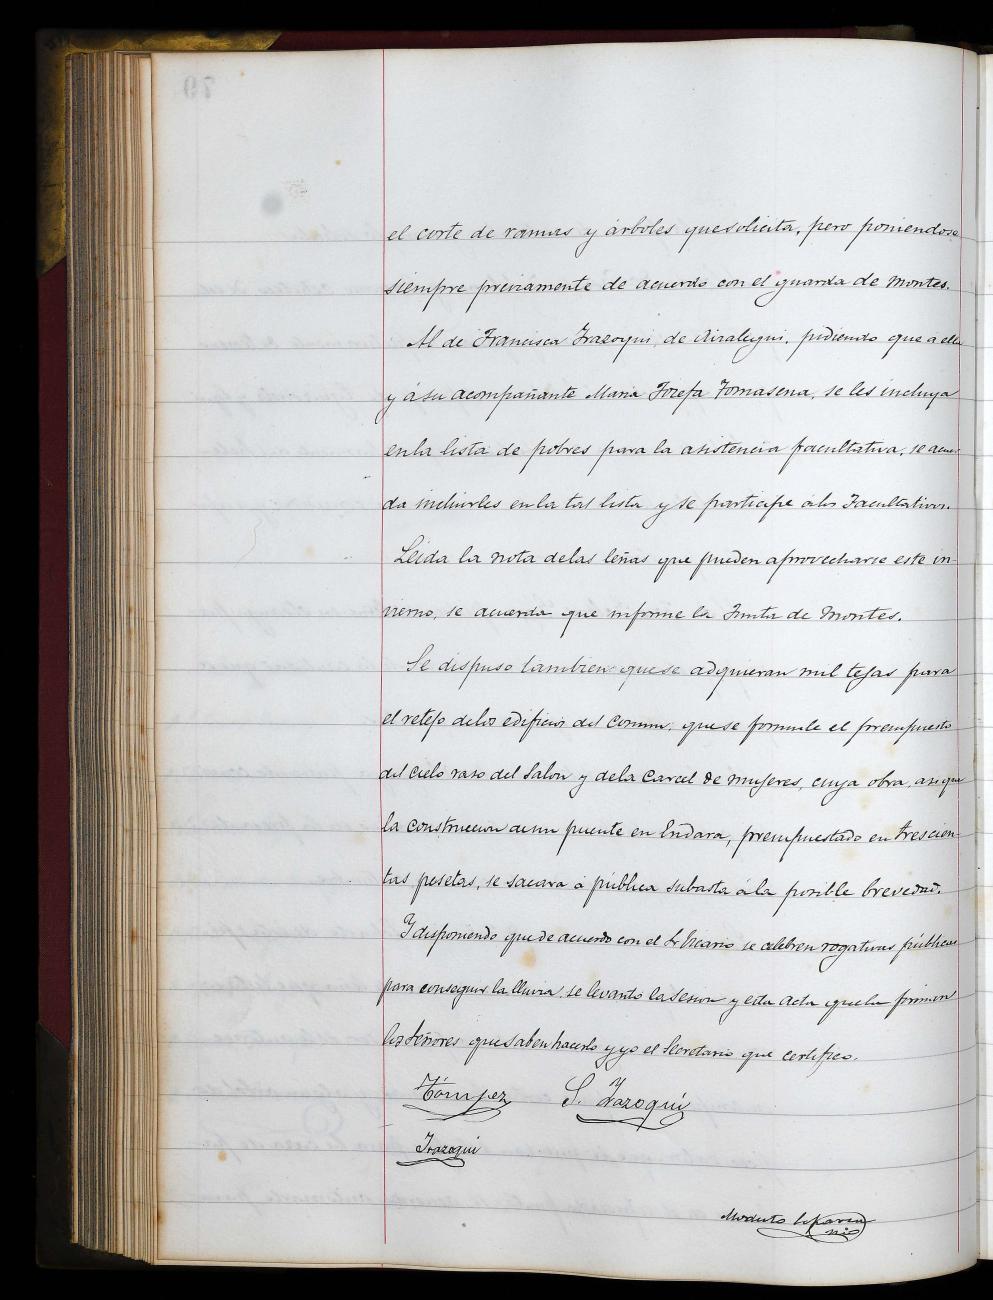 el corte de ramas y árboles que solicita, pero poniendose
siempre previamente de acuerdo con el guarda de montes.
Al de Francisca Irazoqui, de pidiendo que a ella
y á su acompañante Maria Josefa Tomasena, se les incluya
en la lista de pobres para la asistencia facultativa, se acuer-
da incluirles en la tal lista y se participe á los Facultativos.
Leida la nota de las leñas que pueden aprovecharse este in-
vierno, se acuerda que informe la Junta de Montes.
Se dispuso tambien que se adquieran mil tejas para
el retejo de los edificios del comun; que se formule el presupuesto
del cielo raso del Salon y de la Carcel de mujeres, cuya obra, asi que
la construccion de un puente en Endara, presupuestado en trescien-
tas pesetas, se sacara á pública subasta á la posible brevedad.
Y disponiendo que de acuerdo con el Sr Vicario se celebren rogativas públicas
para conseguir la lluvia, se levantó la Sesion y esta acta que la firman
los Señores que saben hacerlo y yo el Secretario que certifico.
S. Irazoqui
Irazoqui
Modesto